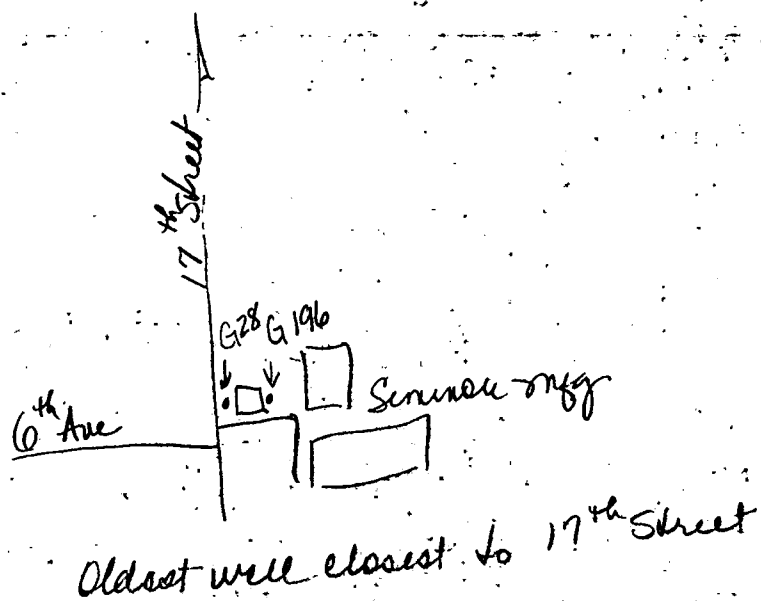 17th Street
G28 G196
Seminole mfg
6th Ave
Oldest well closest to 17th Street